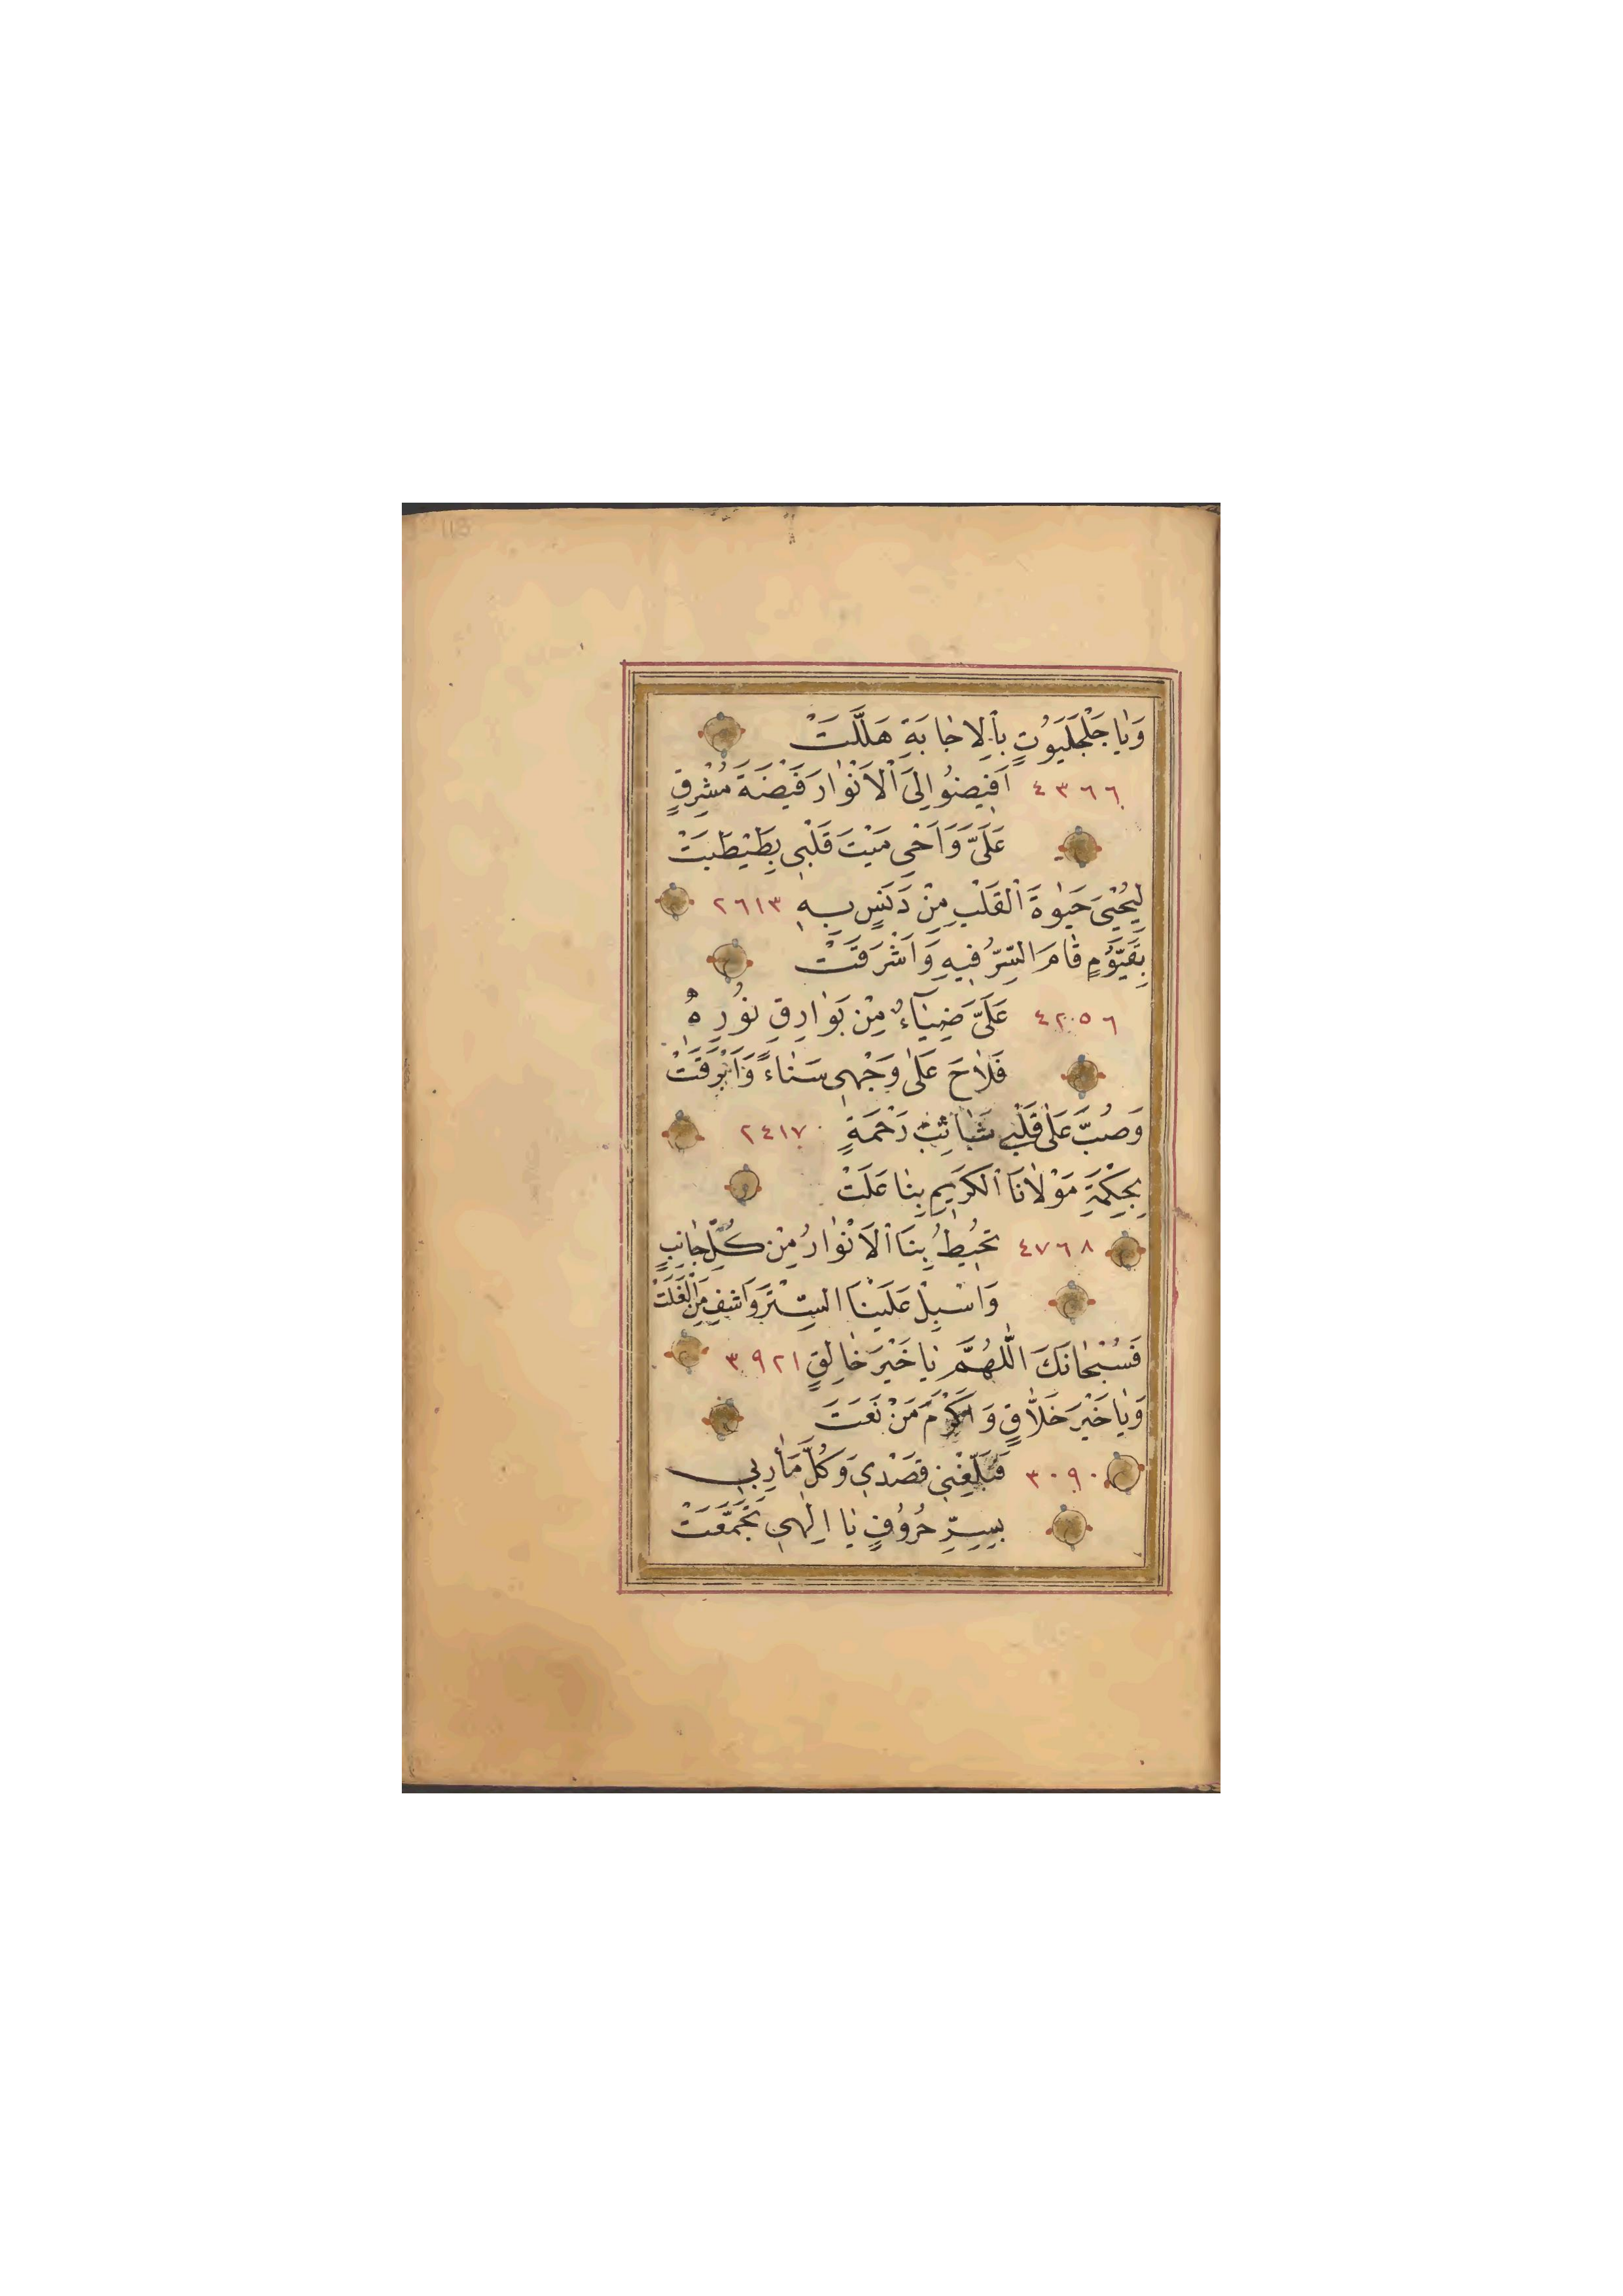 113
وَيَا جَلْجَلَيَوُتٍ بِاْلِاجَابَةِ هَلَّلَتْ
٤٣٦٦ اَفِيضُوا اِلَىَ اْلاَنْوَارَ فَيْضَةَ مُشْرِقٍ
عَلَىَّ وَاَحْىِ مَيْتَ قَلْبِى بِطَيْطَيَتْ
لِيُحْيِىَ حَيٰوةَ اْلقَلْبِ مِنْ دَنَسٍ بِهِ ٢٦١٣
بِقَيّوُمٍ قَامَ السِّرُّ فِيهِ وَاَشْرَقَتْ
٤٢٥٦ عَلَىَّ ضِيَآءٌ مِنْ بَوَارِقِ نُورِهُ
فَلَاحَ عَلَى وَجْهِى سَنَاءً وَاَبْرَقَتْ
وَصُبَّ عَلَى قَلْبِى شَاٰبيبَ رَحْمَةٍ ٢٤١٧
بِحِكْمَةِ مَوْلَانَا اْلكَرِيمِ بِنَا عَلَتْ
٤٧٦٨ تُحِيطُ بِنَا اْلاَنْوَارُ مِنْ كُلِّ جَانِبٍ
وَاسْبِلْ عَلَيْنَا السِّتْرَ وَاشْفِ مِنَ اْلغَلَتْ
فَسُبْحَانَكَ اللّٰهُمَّ يَا خَيْرَ خَالِقٍ ٣٩٢١
وَيَا خَيْرَ خَلَّاقٍ وَاَكْرَمَ مَنْ نَعَتَ
٣٠٩٠ فَبَلِّغْنِى قَصْدِى وَكُلَّ مَأٰرِبِى
بِسِرِّ حُرُوُفٍ يَا اِلٰهِى تَجَمَّعَتْ